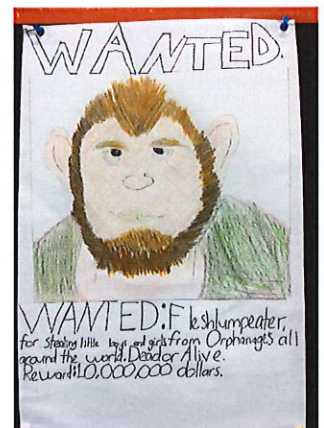 WANTED.
WANTED: Fleshlumpeater,
for Stealing little boys and girls from Orphanages all
around the world. Dead or Alive.
Reward: 10,000,000 dollars.